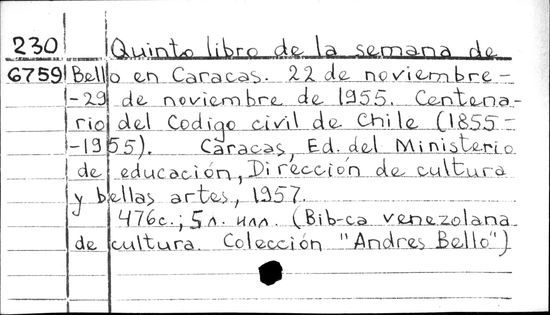 230 Quinto libro de la semana de
6759 Bello en Caracas. 22 de noviembre -
- 29 de noviembre de 1955. Centena-
rio del Codigo civil de Chile (1855-
-1955). Caracas, Ed. del Ministerio
de educación, Dirección de cultura
y bellas artes, 1957.
476с.; 5л. илл. (Bib-ca venezolana
de cultura. Colección "Andres Bello")